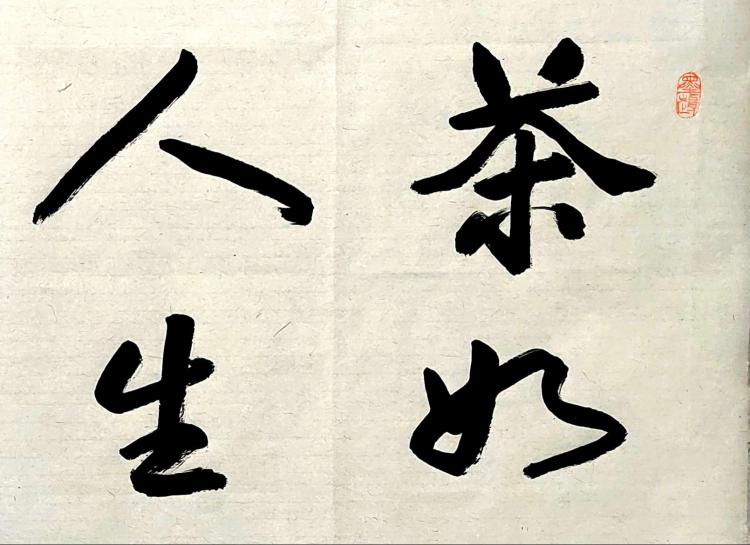 茶如
人生